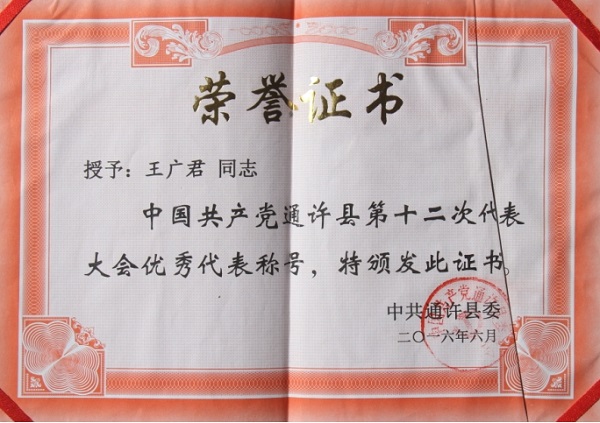 荣誉证书
授予：王广君 同志
中国共产党通许县第十二次代表
大会优秀代表称号，特颁发此证书。
中共通许县委
二〇一六年六月